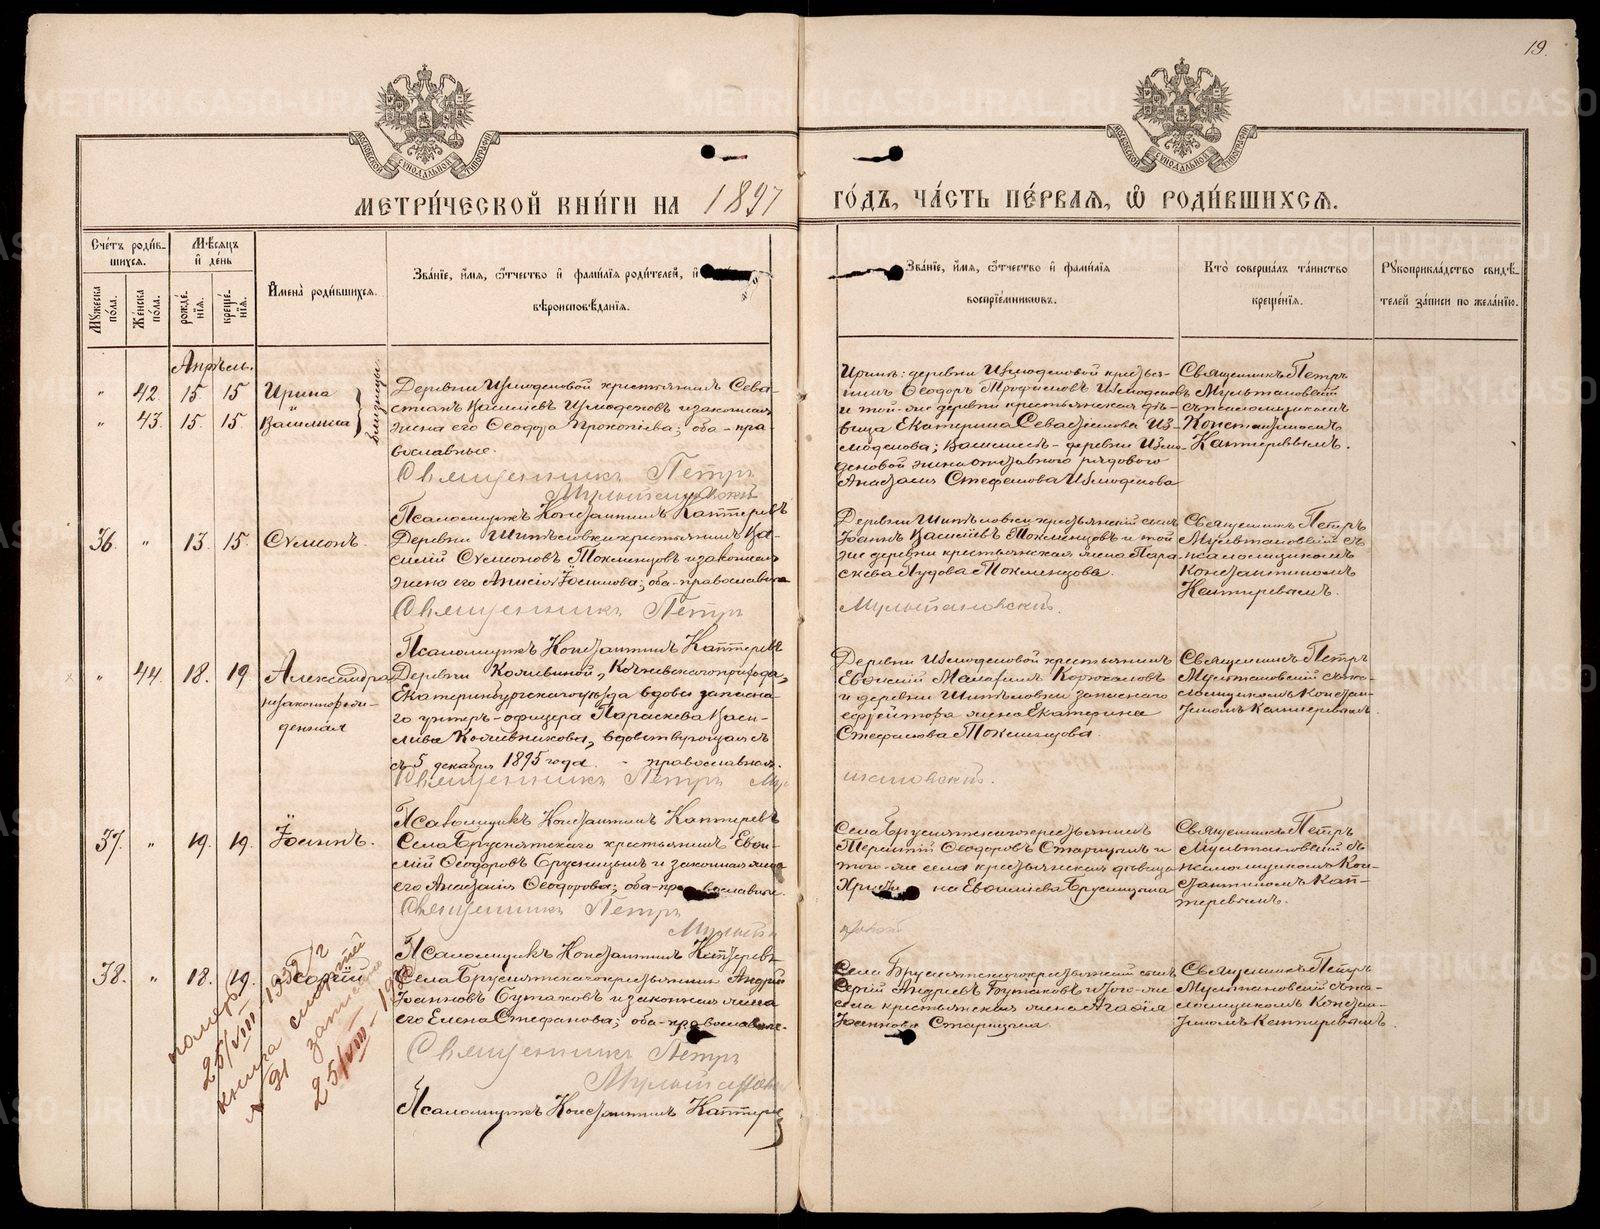 19.
МЕТРИ́ЧЕСКОЙ КНИ́ГИ НА 1897
ГО́ДЪ, ЧА́СТЬ ПЕ́РВАЯ, Ѽ РОДИ́ВШИХСЯ.
Сче́тъ роди́в-
шихся.
Мѣ́сяцъ
и҆ де́нь
Мꙋ́жеска по́ла.
Же́нска по́ла.
рожде́-
нїя.
креще́-
нїя.
И҆мена̀ роди́вшихся.
Зва́нїе, и҆́мя, ѻ҆́тчество и҆ фами́лїя роди́телей, и҆
вѣроисповѣ́данїя.
Зва́нїе, и҆́мя, ѻ҆́тчество и҆ фами́лїя
воспрїе́мниковъ.
Кто̀ соверша́лъ та́инство
креще́нїя.
Рꙋкоприкла́дство свидѣ́-
телей за́писи по жела́нїю.
Апрѣль.
" 42. 15 15 Ирина
и
" 43. 15. 15 Василиса
близнецы
Деревни Измоденовой крестьянинъ Сева-
стіанъ Василіевъ Измоденовъ и законная
жена его Ѳеодора Прокопіева; оба-пра-
вославные.
Священникъ Петръ
Мультановскій
Псаломщикъ Константинъ Каптеревъ
Ирины: деревни Измоденовой крестья-
нинъ Ѳеодоръ Трофимовъ Измоденовъ
и той-же деревни крестьянская дѣ-
вица Екатерина Севастіанова Из-
моденова; Василисы- деревни Измо-
деновой жена отставного рядового
Анастасія Стефанова Измоденова
Священникъ Петръ
Мультановскій
съ псаломщикомъ
Константиномъ
Каптеревымъ.
36. " 13. 15. Сѵмеонъ.
Деревни Шипѣловки крестьянинъ Ва-
силій Сѵмеоновъ Токменцовъ и законная
жена его Анисія Іосифова; оба-православные
Священникъ Петръ
Мультановскій.
Псаломщикъ Константинъ Каптеревъ
Деревни Шипѣловки крестьянскій сынъ
Іоаннъ Василіевъ Токменцовъ и той
же деревни крестьянская жена Пара-
скева Токменцова.
Священникъ Петръ
Мультановскій съ
псаломщикомъ
Константиномъ
Каптеревымъ.
" 44. 18. 19 Александра
незаконнорож-
денная
Екатеринбургскаго уѣзда вдова запасна-
го унтеръ-офицера Параскева Васи-
вдовствующая съ
съ 5 декабря 1895 года. - православная.
Священникъ Петръ Муль
тановскій.
Псаломщикъ Константинъ Каптеревъ
Деревни Измоденовой крестьянинъ
и деревни Шипѣловки запаснаго
ефрейтора жена Екатерина
Стефанова Токменцова.
Священникъ Петръ
Мультановскій съ пса-
ломщикомъ Констан-
тиномъ Каптеревымъ.
37. " 19. 19. Іоаннъ.
Села Бруснятскаго крестьянинъ Евѳи-
мій Ѳеодоровъ Брусницынъ и законная жена
его Анастасія Ѳеодорова; оба-православные.
Священникъ Петръ
Мультановскій
Псаломщикъ Константинъ Каптеревъ
Села Бруснятскаго крестьянинъ
Терентій Ѳеодоровъ Старицынъ и
того-же села крестьянская дѣвица
Христина Евѳиміева Брусницына
Священникъ Петръ
Мультановскій съ
псаломщикомъ Кон-
стантиномъ Кап-
теревымъ.
38. " 18. 19. Георгій
Села Бруснятскаго крестьянинъ Андрей
Іоанновъ Бутаковъ и законная жена
его Елена Стефанова; оба-православные.
Священникъ Петръ
Мультановскій
Псаломщикъ Константинъ Каптеревъ
Села Бруснятскаго крестьянскій сынъ
Сергій Андреевъ Бутаковъ и того-же
села крестьянская жена Агаѳія
Іоаннова Старицына
Священникъ Петръ
Мультановскій съ пса-
ломщикомъ Констан-
тиномъ Каптеревымъ.
25/VIII
книга
25/VIII
METRIKI.GASO-URAL.RU